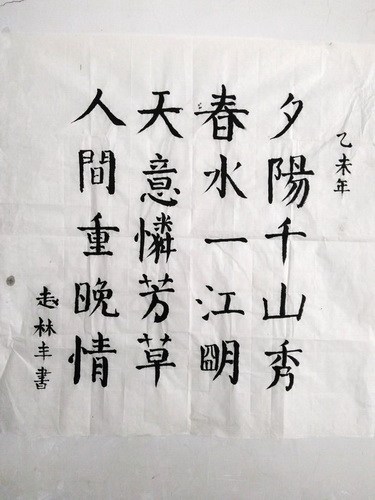 乙未年
夕陽千山秀
春水一江明
天意憐芳草
人間重晚情
赵林丰書